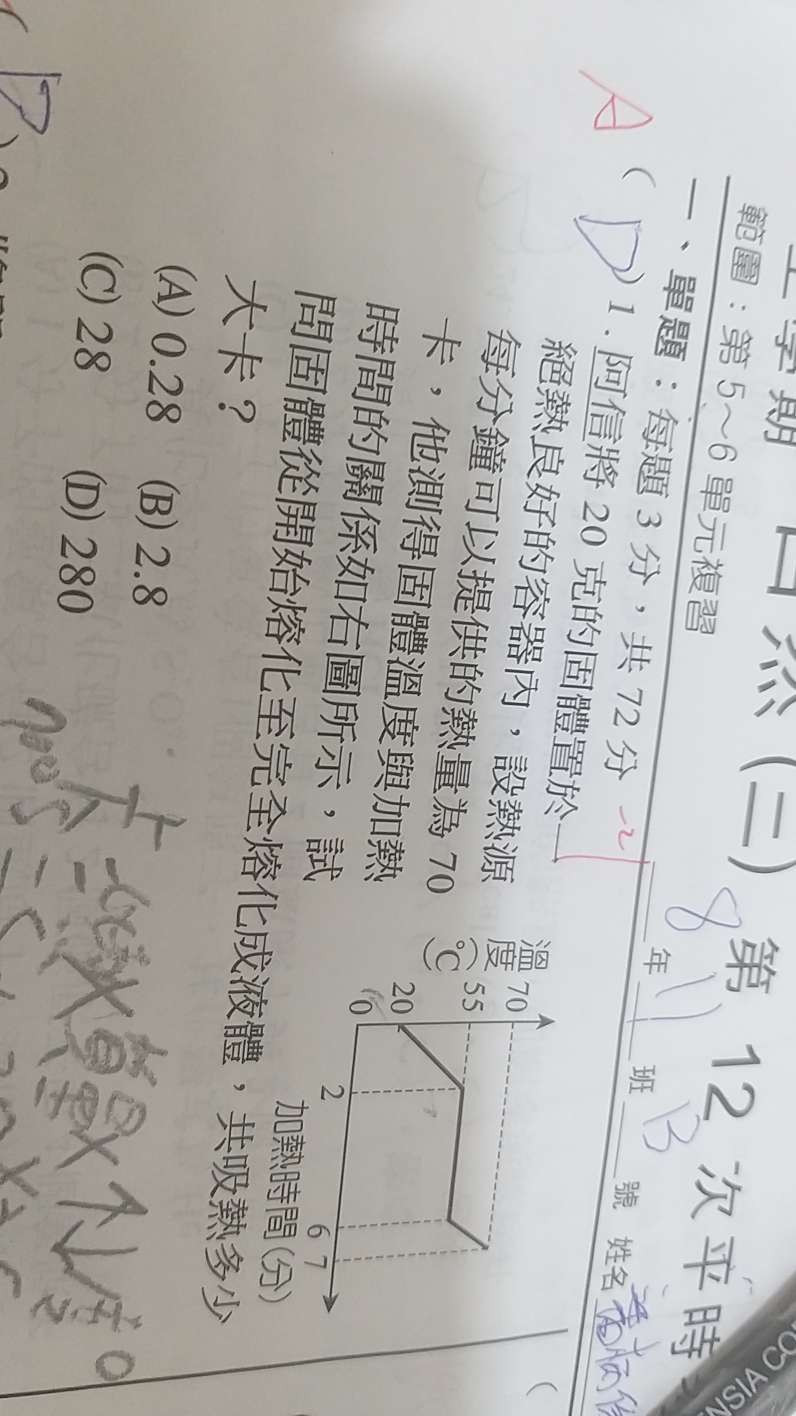 上學期 自然(三) 第 12 次平時
範圍：第 5～6 單元複習
8 年 11 班 13 號 姓名
一、單題：每題 3 分，共 72 分 -2
A
( D ) 1. 阿信將 20 克的固體置於一
絕熱良好的容器內，設熱源
每分鐘可以提供的熱量為 70
卡，他測得固體溫度與加熱
時間的關係如右圖所示，試
問固體從開始熔化至完全熔化成液體，共吸熱多少
大卡？
(A) 0.28 (B) 2.8
(C) 28 (D) 280
溫度(℃)
70
55
20
0
2
6
7
加熱時間(分)
D
ENSIA CO